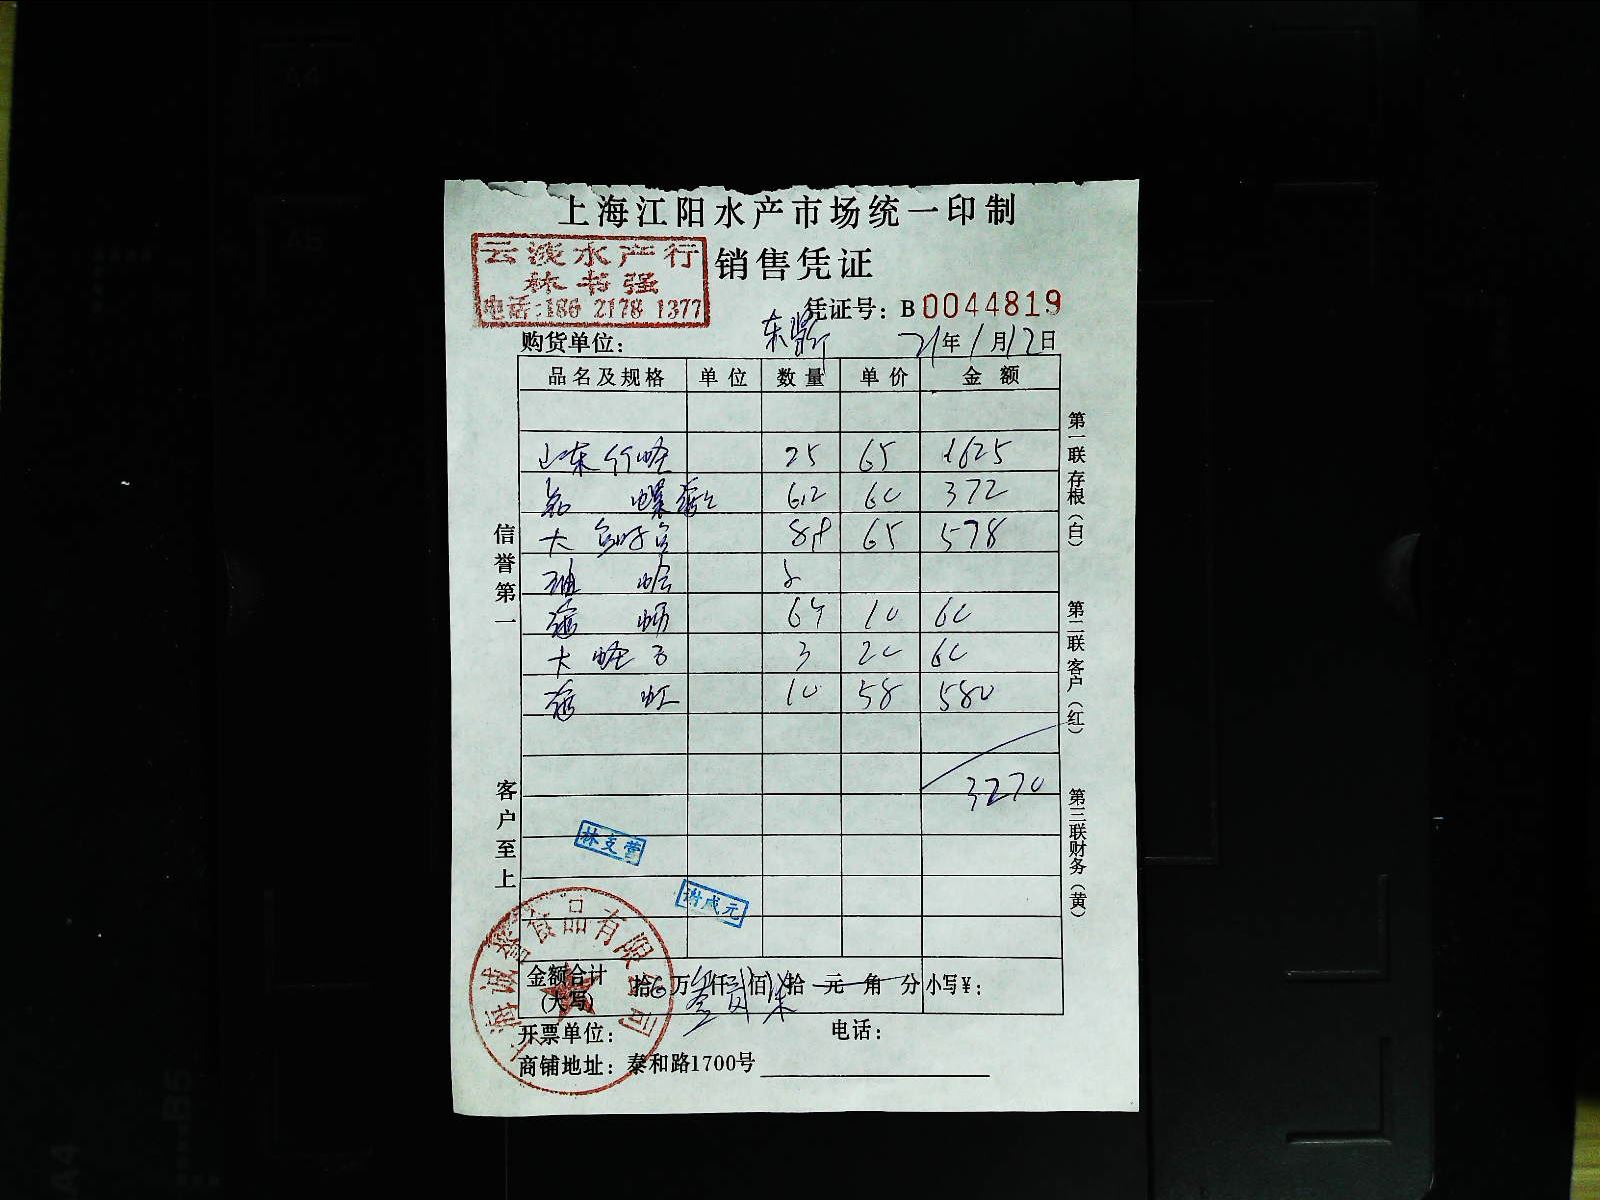 上海江阳水产市场统一印制
云淡水产行
林书强
电话:186 2178 1377
销售凭证
凭证号：B 0044819
购货单位： 21年1月12日
品名及规格 单位 数量 单价 金额
山东 25 65 1625
螺 6.2 60 372
大 65 578
海 10 60
大蛏子 3 20 60
海虹 10 58 580
3270
信誉第一
客户至上
第一联 存根（白）
第二联 客户（红）
第三联 财务（黄）
谢成元
海诚 食品有限公司
金额合计（大写） 拾 万叁仟贰佰柒拾元角分 小写￥：
开票单位： 电话：
商铺地址：泰和路1700号